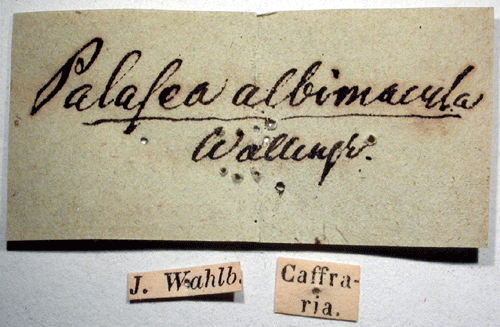 Palasea albimacula
Wallengr.
J. Wahlb.
Caffra-
ria.